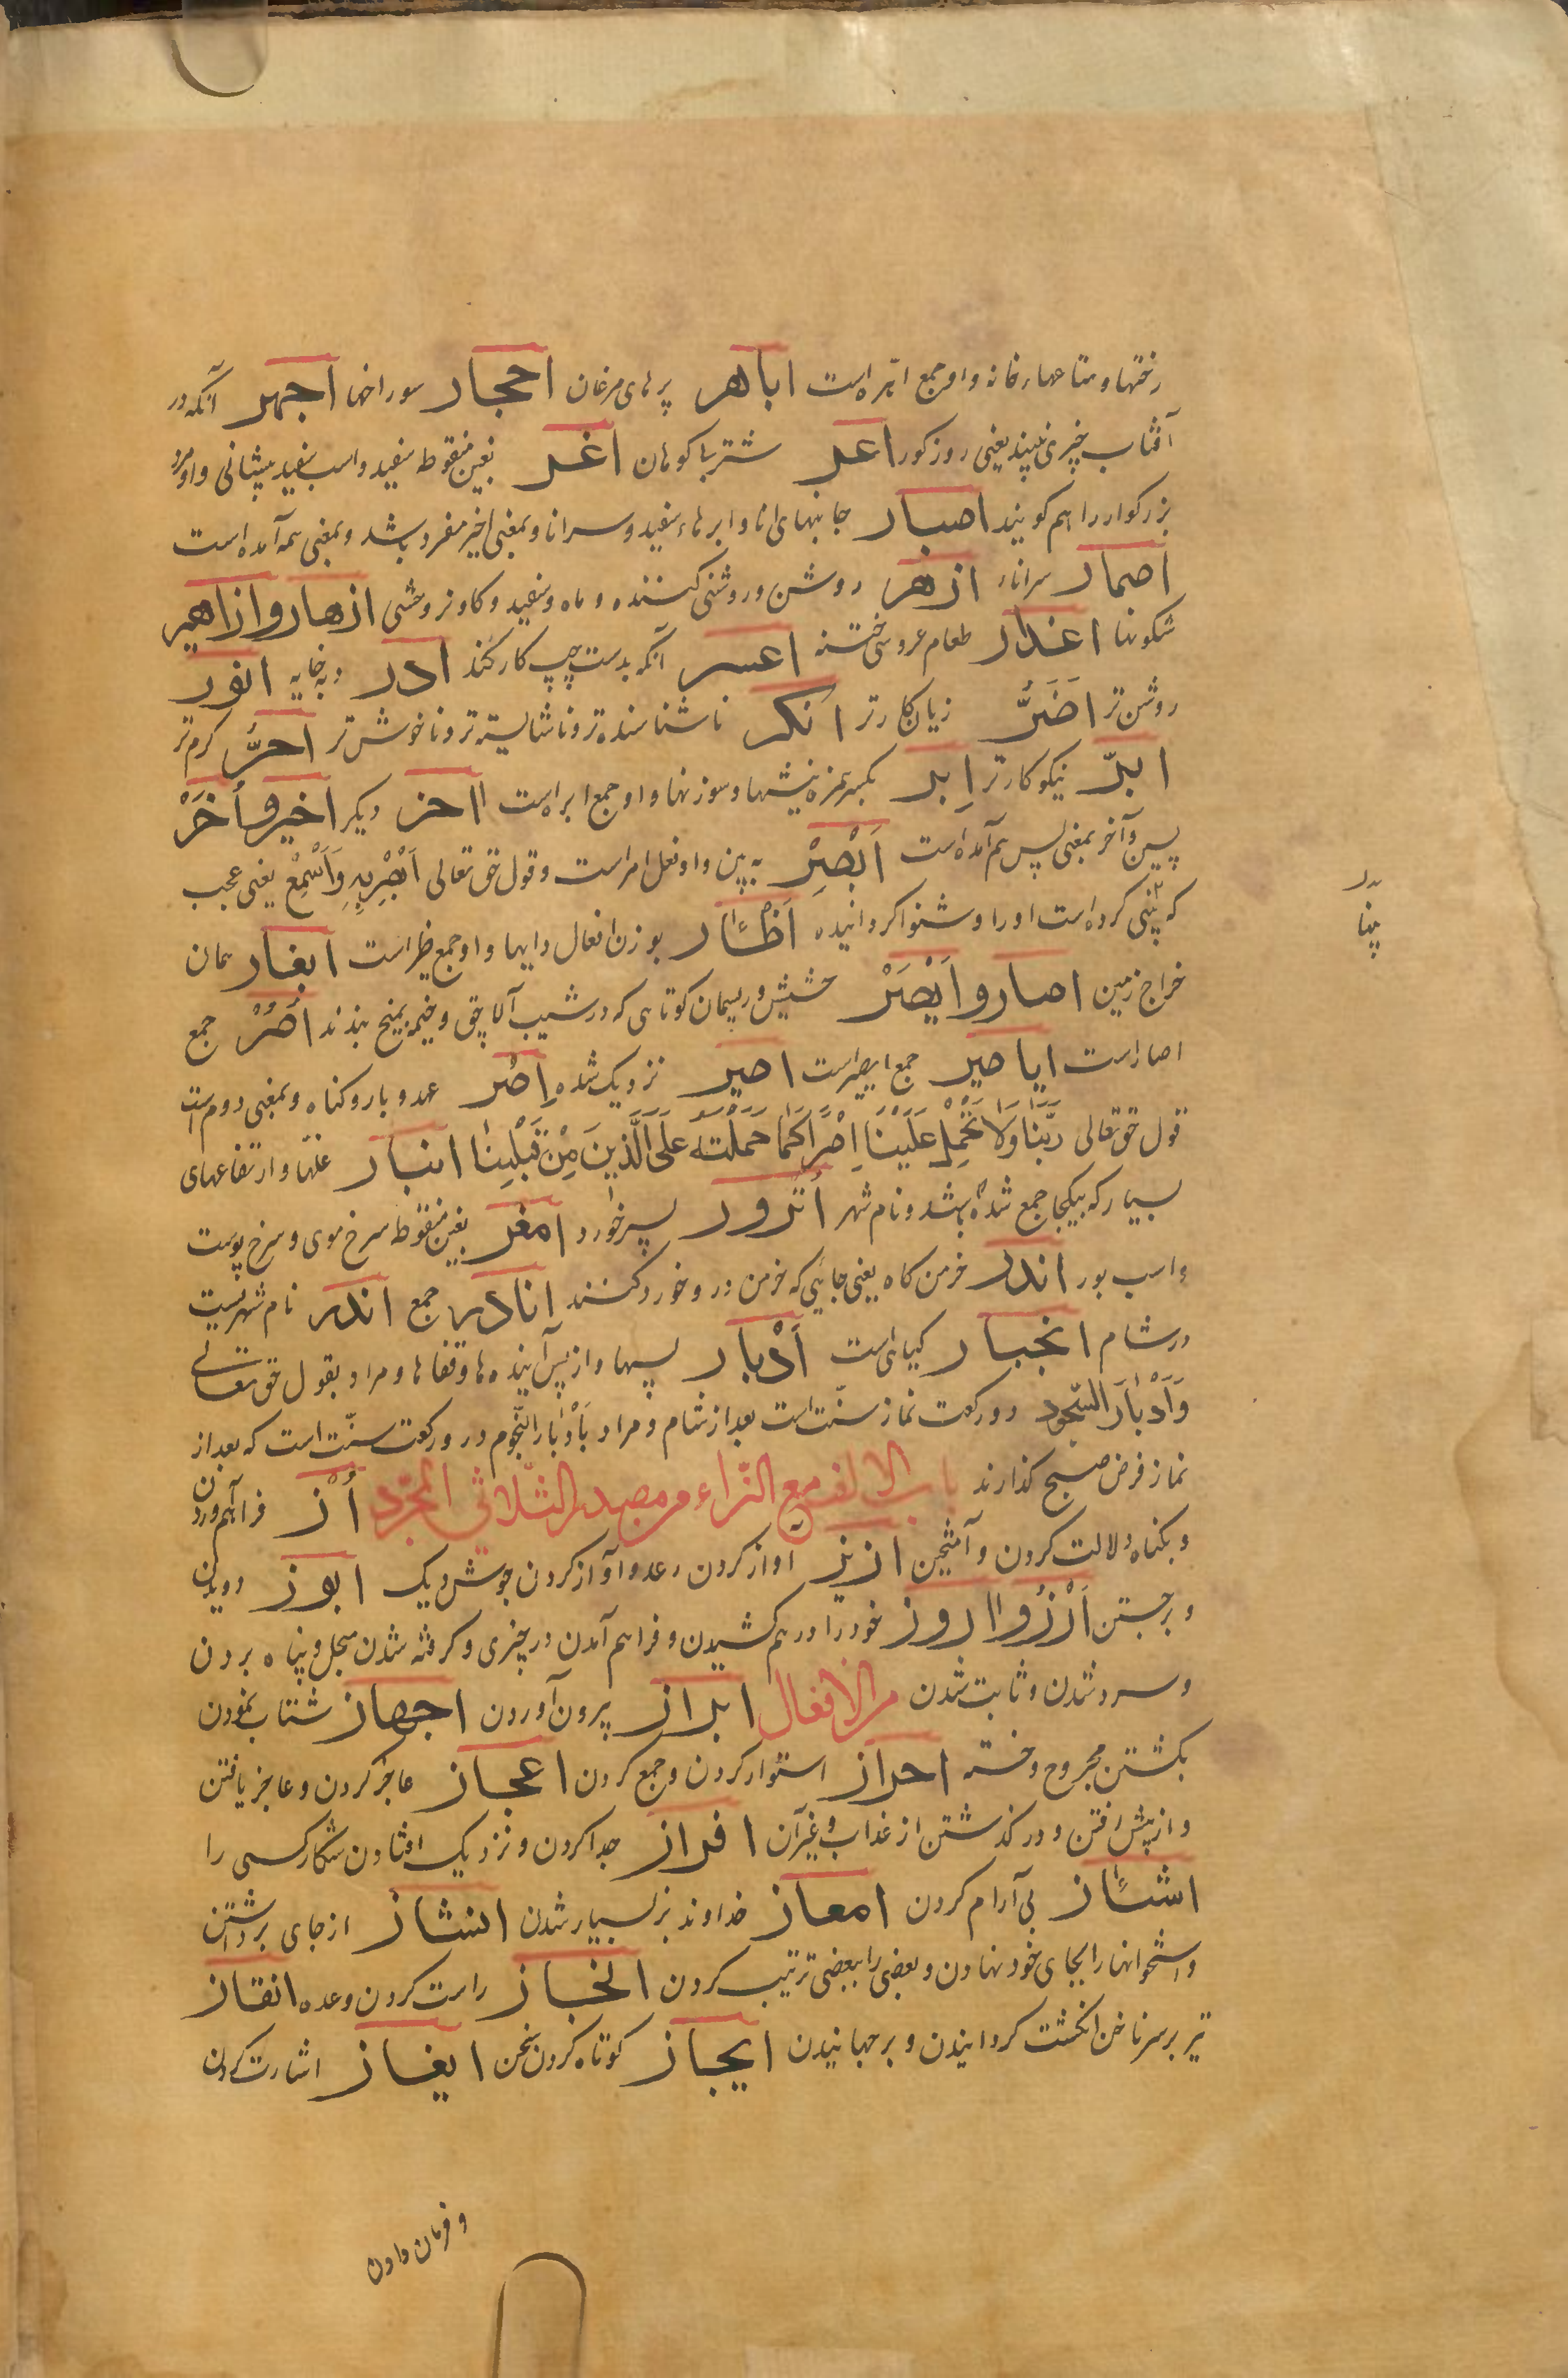 رختها و متاعهاء خانه و او جمع اهره است اباهر پرهای مرغان احجار سوراخها اجهر آنکه در
آفتاب چیزی نبیند یعنی روز کور اعر شتر با کوهان اغر بغین منقوطه سفید و اسب سفید پیشانی و او مرد
بزرکوار را هم کویند اصبار جانبهای انا و ابرهاء سفید و سر انا و بمعنی اخیر مفرد باشد و بمعنی همه آمده است
اصمار سر اناء ازهر روشن و روشنی کننده و ماه و سفید و کاو نر وحشی ازهار و ازاهیر
شکوفها اعذار طعام عروسی ختنه اعسر آنکه بدست چپ کار کند ادر دبه خایه انور
روشن تر اَضَرُّ زیان کارتر انکر ناشناسنده تر و ناشایسته تر و ناخوش تر احرُّ کرم تر
ابرّ نیکوکارتر اِبر بکسر همزه نیشها و سوزنها و او جمع ابره است آخر دیکر اخیر و اُخَرْ
پسین و آخر بمعنی پس هم آمده است اَبْصِرْ به بین و او فعل امر است و قول حق تعالی اَبْصِرْ بِهِ وَاَسْمِعْ یعنی عجب
که بینی کرده است او را و شنوا کردانیده اَظْئار بوزن افعال دایها و او جمع ظئر است ابغار همان
خراج زمین اصار و اَیْصَرْ حشیش و ریسمان کوتاهی که در شیب آلاچق و خیمه بمیخ بندند اُصُرْ جمع
اصار است ایاصیر جمع ایصر است اصیر نزدیک شده اِصْر عهد و بار و کناه و بمعنی دوم است
قول حق تعالی رَبَّنَا وَلَا تَحْمِلْ عَلَیْنَا اِصْرًا کَمَا حَمَلْتَهُ عَلَی الَّذِینَ مِنْ قَبْلِنَا انبار غلّها و ارتفاعهای
بسیار که بیکجا جمع شده باشد و نام شهر اُترور پسر خورد امغر بغین منقوطه سرخ موی و سرخ پوست
و اسب بور اندر خرمن کاه یعنی جائیی که خرمن درو خورد کنند انادر جمع اندر نام شهریست
در شام انجبار کیاهی است اَدْبار پسها و از پس آینده ها و قفاها و مراد بقول حق تعالی
وَاَدْبَارَ السُّجُود دو رکعت نماز سنّت است بعد از شام و مراد بَادْبار النّجوم دو رکعت سنّت است که بعد از
نماز فرض صبح کذارند باب الالف مع الزاء من مصدر الثلاثی المجرّد اُزْ فراهم آوردن
و بکناه دلالت کردن و آمیختن ازیز آواز کردن رعد و آواز کردن جوش دیک ابوز دویدن
و برجستن اَزْز و اروز خود را در هم کشیدن و فراهم آمدن در چیزی و کرفته شدن بجل و پناه بردن
و سرد شدن و ثابت شدن من الافعال ابراز بیرون آوردن اجهاز شتاب نمودن
بکشتن مجروح و خسته احراز استوار کردن و جمع کردن اعجاز عاجز کردن و عاجز یافتن
و از پیش رفتن و در کذشتن از عذاب و غیر آن افراز جدا کردن و نزدیک افتادن شکار کسی را
اشئاز بی آرام کردن امعاز خداوند بز بسیار شدن انشاز از جای برداشتن
و استخوانها را بجای خود نهادن و بعضی را ببعضی ترتیب کردن انجاز راست کردن وعده انقاز
تیر بر سر ناخن انکشت کردانیدن و برجهانیدن ایجاز کوتاه کردن سخن ایغاز اشارت کردن
و فرمان دادن